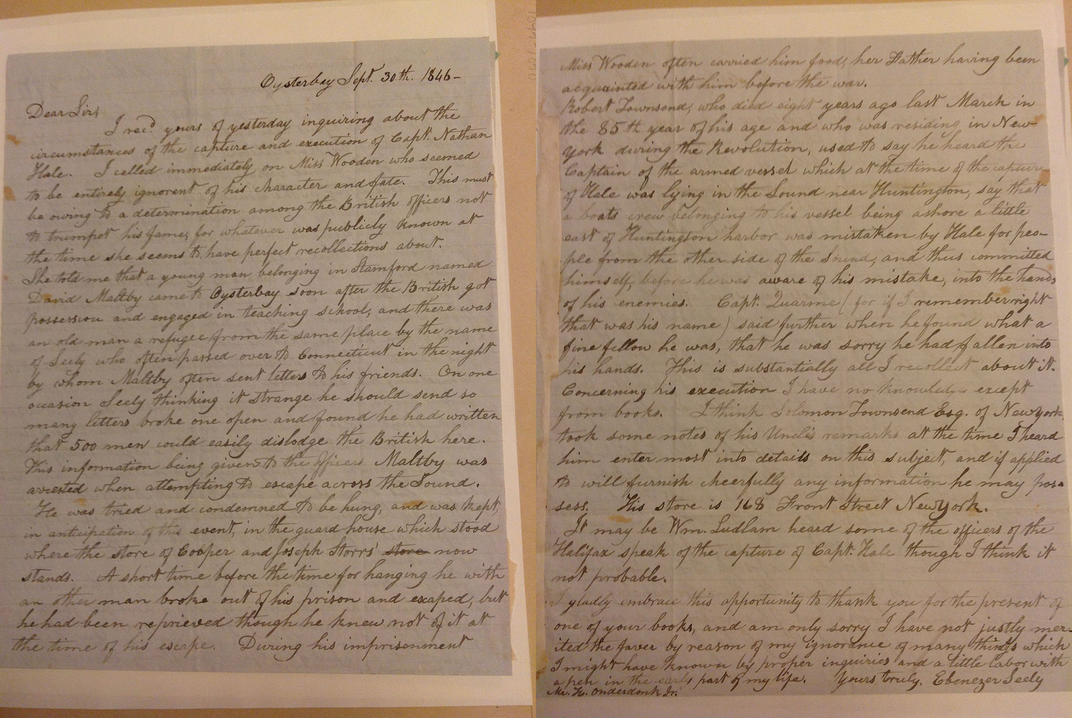 Oysterbay Sept. 30th. 1846-
Dear Sir,
I recd yours of yesterday inquiring about the
circumstances of the capture and execution of Capt. Nathan
Hale. I called immediately on Miss Wooden who seemed
to be entirely ignorent of his character and fate. This must
be owing to a determination among the British officers not
to trumpet his fame, for whatever was publicly known at
the time she seems to have perfect recollections about.
She told me that a young man belonging in Stamford named
David Maltby came to Oysterbay soon after the British got
possession and engaged in teaching school, and there was
an old man a refugee from the same place by the name
of Seely who often passed over to Connecticut in the night
by whom Maltby often sent letters to his friends. On one
occasion Seely thinking it strange he should send so
many letters broke one open and found he had written
that 500 men could easily dislodge the British here.
This information being given to the officers Maltby was
arrested when attempting to escape across the Sound.
He was tried and condemned to be hung, and was kept,
in anticipation of this event, in the guard house which stood
where the store of Cooper and Joseph Storrs' store now
stands. A short time before the time for hanging he with
an other man broke out of his prison and escaped, but
he had been reprieved though he knew not of it at
the time of his escape. During his imprisonment
Miss Wooden often carried him food, her Father having been
acquainted with him before the war.
Robert Townsend, who died eight years ago last March in
the 85th year of his age and who was residing in New-
York during the Revolution, used to say he heard the
Captain of the armed vessel which at the time of the capture
of Hale was lying in the Sound near Huntington, say that
a boats crew belonging to his vessel being ashore a little
east of Huntington harbor was mistaken by Hale for peo-
ple from the other side of the Sound, and thus committed
himself, before he was aware of his mistake, into the hands
of his enemies. Capt. Quarme (for if I remember right
that was his name) said further when he found what a
fine fellow he was, that he was sorry he had fallen into
his hands. This is substantially all I recollect about it.
Concerning his execution I have no knowled- except
from books. I think Solomon Townsend Esq. of New York
took some notes of his Uncle's remarks at the time I heard
him enter most into details on this subject, and if applied
to will furnish cheerfully any information he may pos-
sess. His store is 168 Front Street New York.
It may be Wm. Ludlam heard some of the officers of the
Halifax speak of the capture of Capt. Hale though I think it
not probable.
I gladly embrace this opportunity to thank you for the present of
one of your books, and am only sorry I have not justly mer-
ited the favor by reason of my ignorance of many things which
I might have known by proper inquiries and a little labor with
a pen in the early part of my life. Yours truly, Ebenezer Seely
Mr. H. Onderdonk Jr.